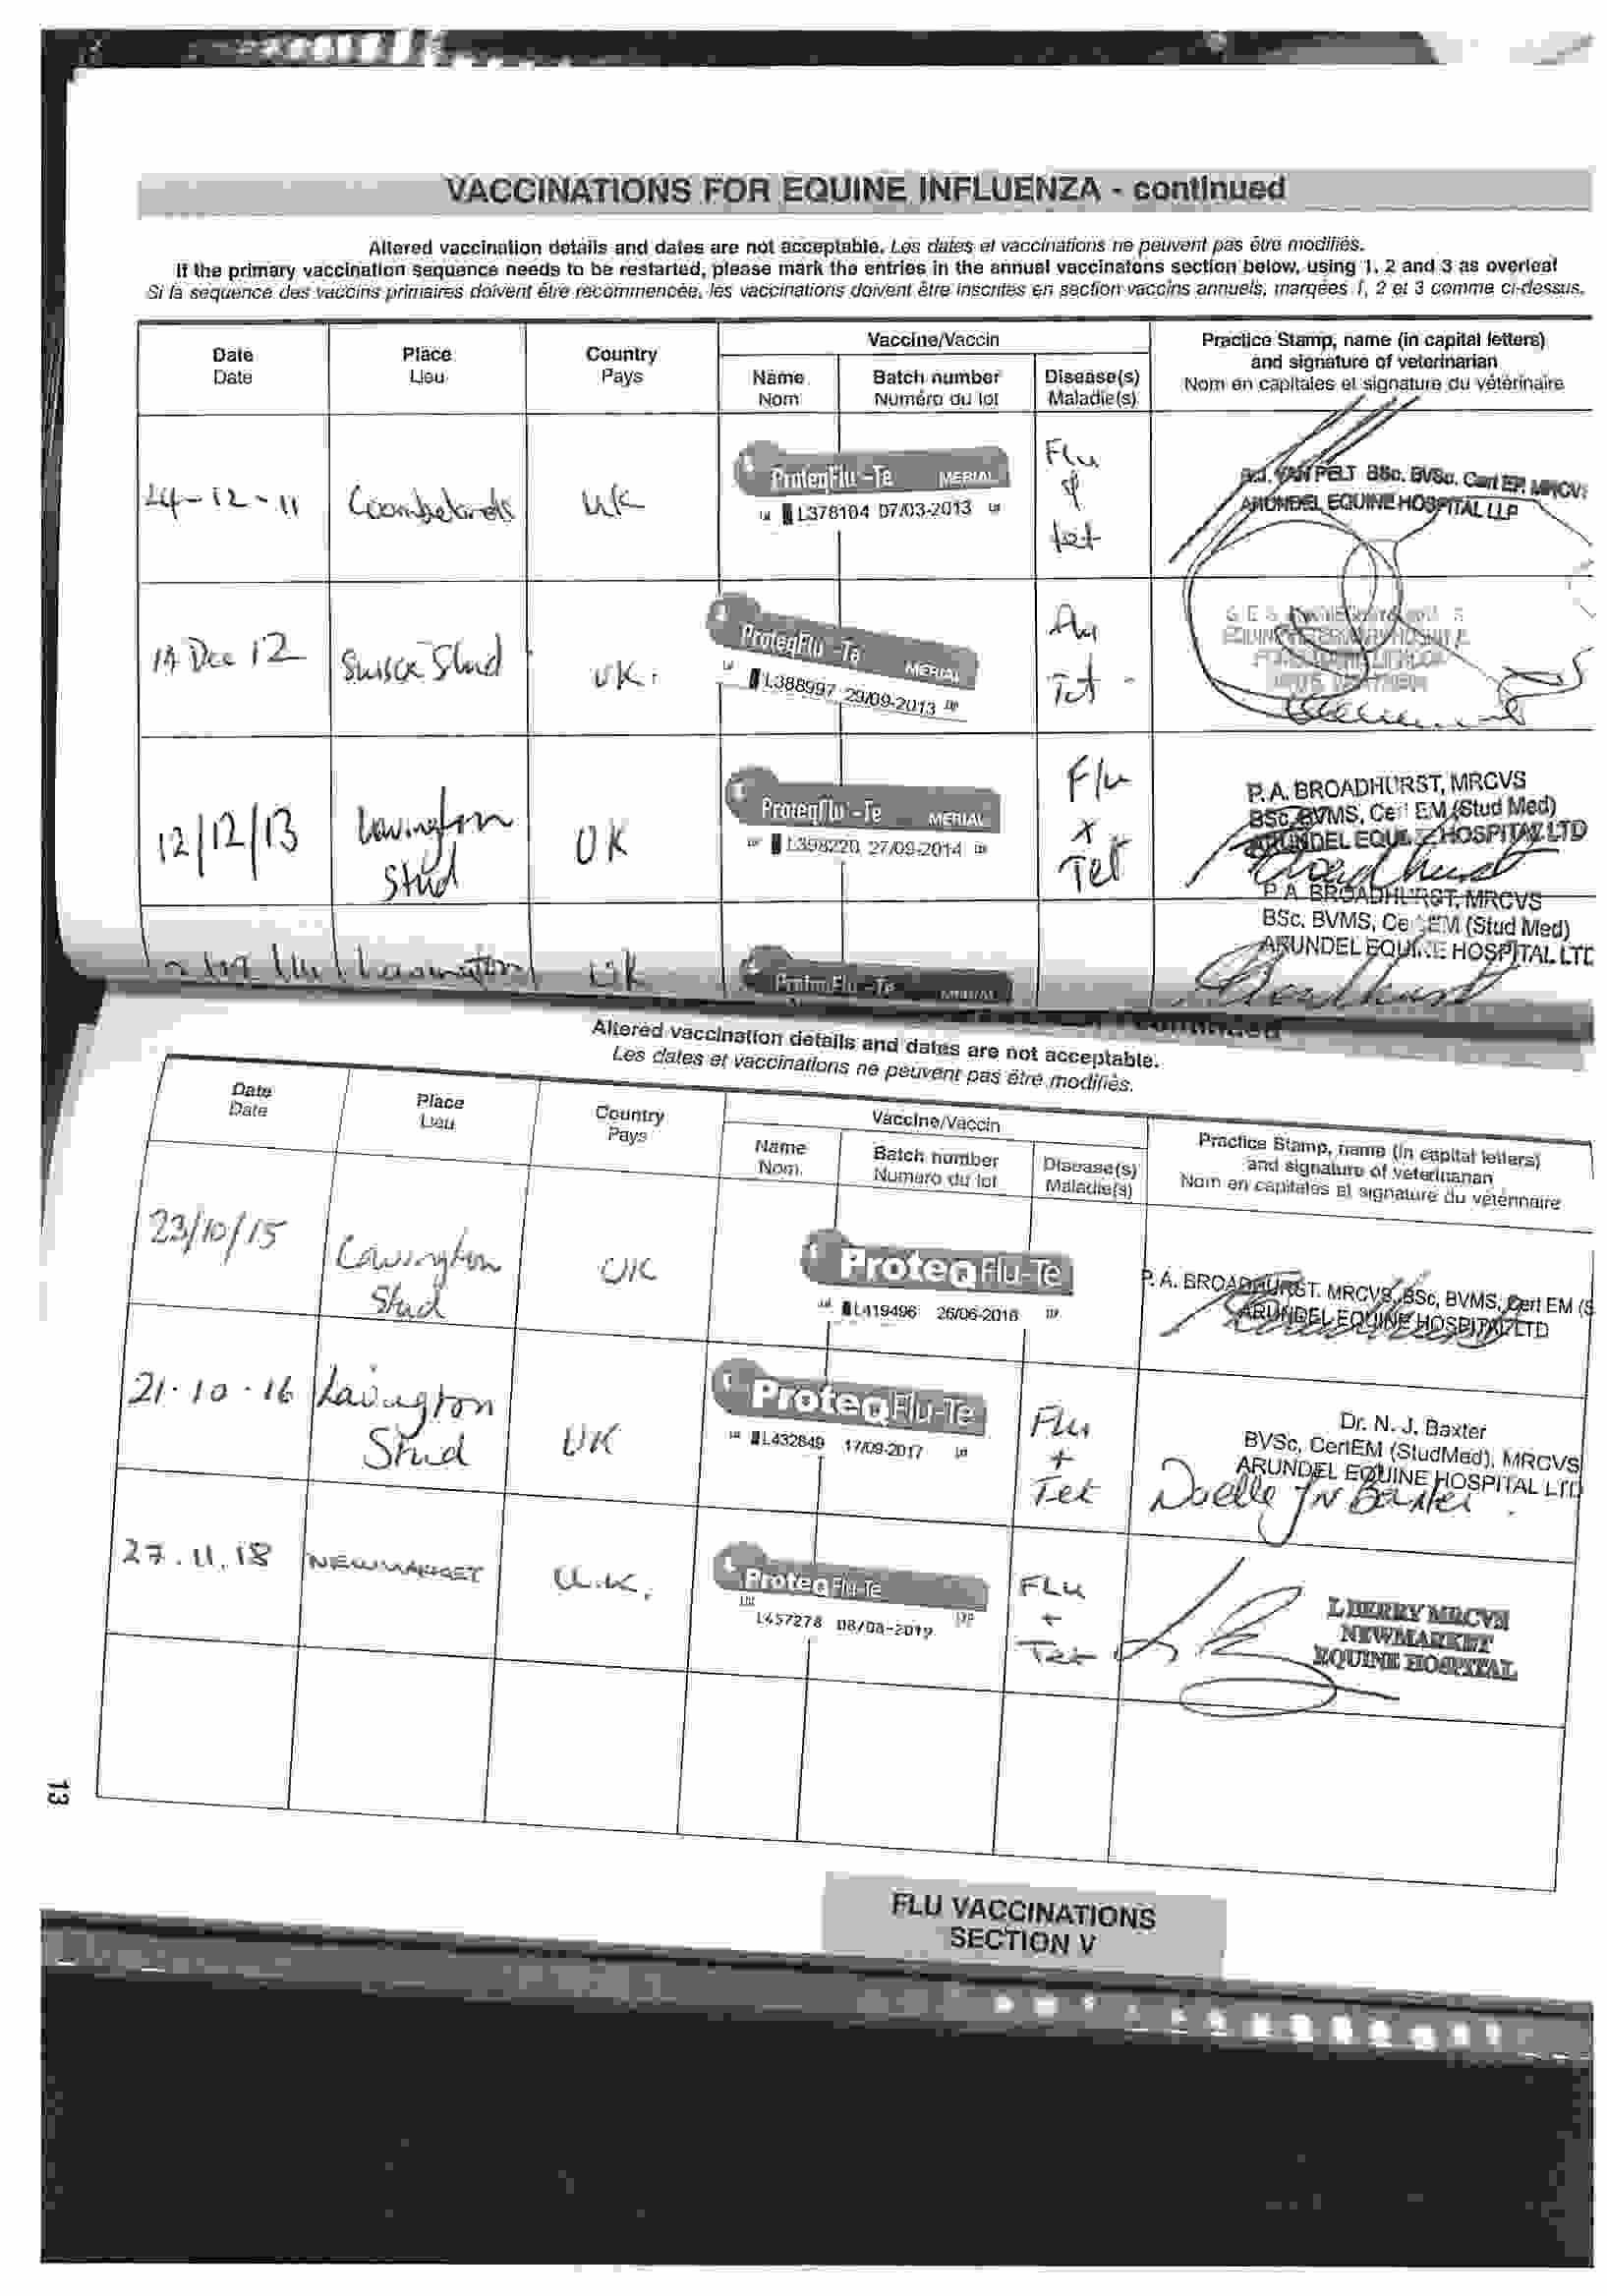 VACCINATIONS FOR EQUINE INFLUENZA - continued
Altered vaccination details and dates are not acceptable. Les dates et vaccinations ne peuvent pas être modifiés.
If the primary vaccination sequence needs to be restarted, please mark the entries in the annual vaccinatons section below, using 1, 2 and 3 as overleaf
Si la sequence des vaccins primaires doivent être recommencée, les vaccinations doivent être inscrites en section vaccins annuels, marqées 1, 2 et 3 comme ci-dessus.
Date Place Country Vaccine/Vaccin Practice Stamp, name (in capital letters)
Date Lieu Pays and signature of veterinarian
Name Batch number Disease(s) Nom en capitales et signature du vétérinaire
Nom Numéro du lot Maladie(s)
24-12-11 Coombelands UK ProteqFlu-Te MERIAL Flu
L378104 07/03-2013 tet
VAN PELT BSc. BVSc. Cert EP. MRCVS
ARUNDEL EQUINE HOSPITAL LLP
Dec 12 Stud UK. ProteqFlu-Te MERIAL Flu
L388997 29/09-2013 Tet
12/12/13 Lavington UK ProteqFlu-Te MERIAL Flu
Stud L398220 27/09-2014 Tet
P. A. BROADHURST, MRCVS
BSc, BVMS, Cert EM (Stud Med)
ARUNDEL EQUINE HOSPITAL LTD
Broadhurst
P. A. BROADHURST, MRCVS
BSc, BVMS, Cert EM (Stud Med)
ARUNDEL EQUINE HOSPITAL LTD
Lavington UK ProteqFlu-Te MERIAL
Broadhurst
continued
Altered vaccination details and dates are not acceptable.
Les dates et vaccinations ne peuvent pas être modifiés.
Date Place Country Vaccine/Vaccin Practice Stamp, name (in capital letters)
Date Lieu Pays and signature of veterinarian
Name Batch number Disease(s) Nom en capitales et signature du vétérinaire
Nom Numero du lot Maladie(s)
23/10/15 Lavington UK ProteqFlu-Te
Stud L419496 26/06-2016
P. A. BROADHURST. MRCVS, BSc, BVMS, Cert EM (S
ARUNDEL EQUINE HOSPITAL LTD
21-10-16 Lavington UK ProteqFlu-Te Flu
Stud L432849 17/09-2017 +
Tet
Dr. N. J. Baxter
BVSc, CertEM (StudMed), MRCVS
ARUNDEL EQUINE HOSPITAL LTD
Baxter
27.11.18 NEWMARKET U.K. ProteqFlu-Te FLU
L457278 08/08-2019 +
Tet
L BERRY MRCVS
NEWMARKET
EQUINE HOSPITAL
13
FLU VACCINATIONS
SECTION V